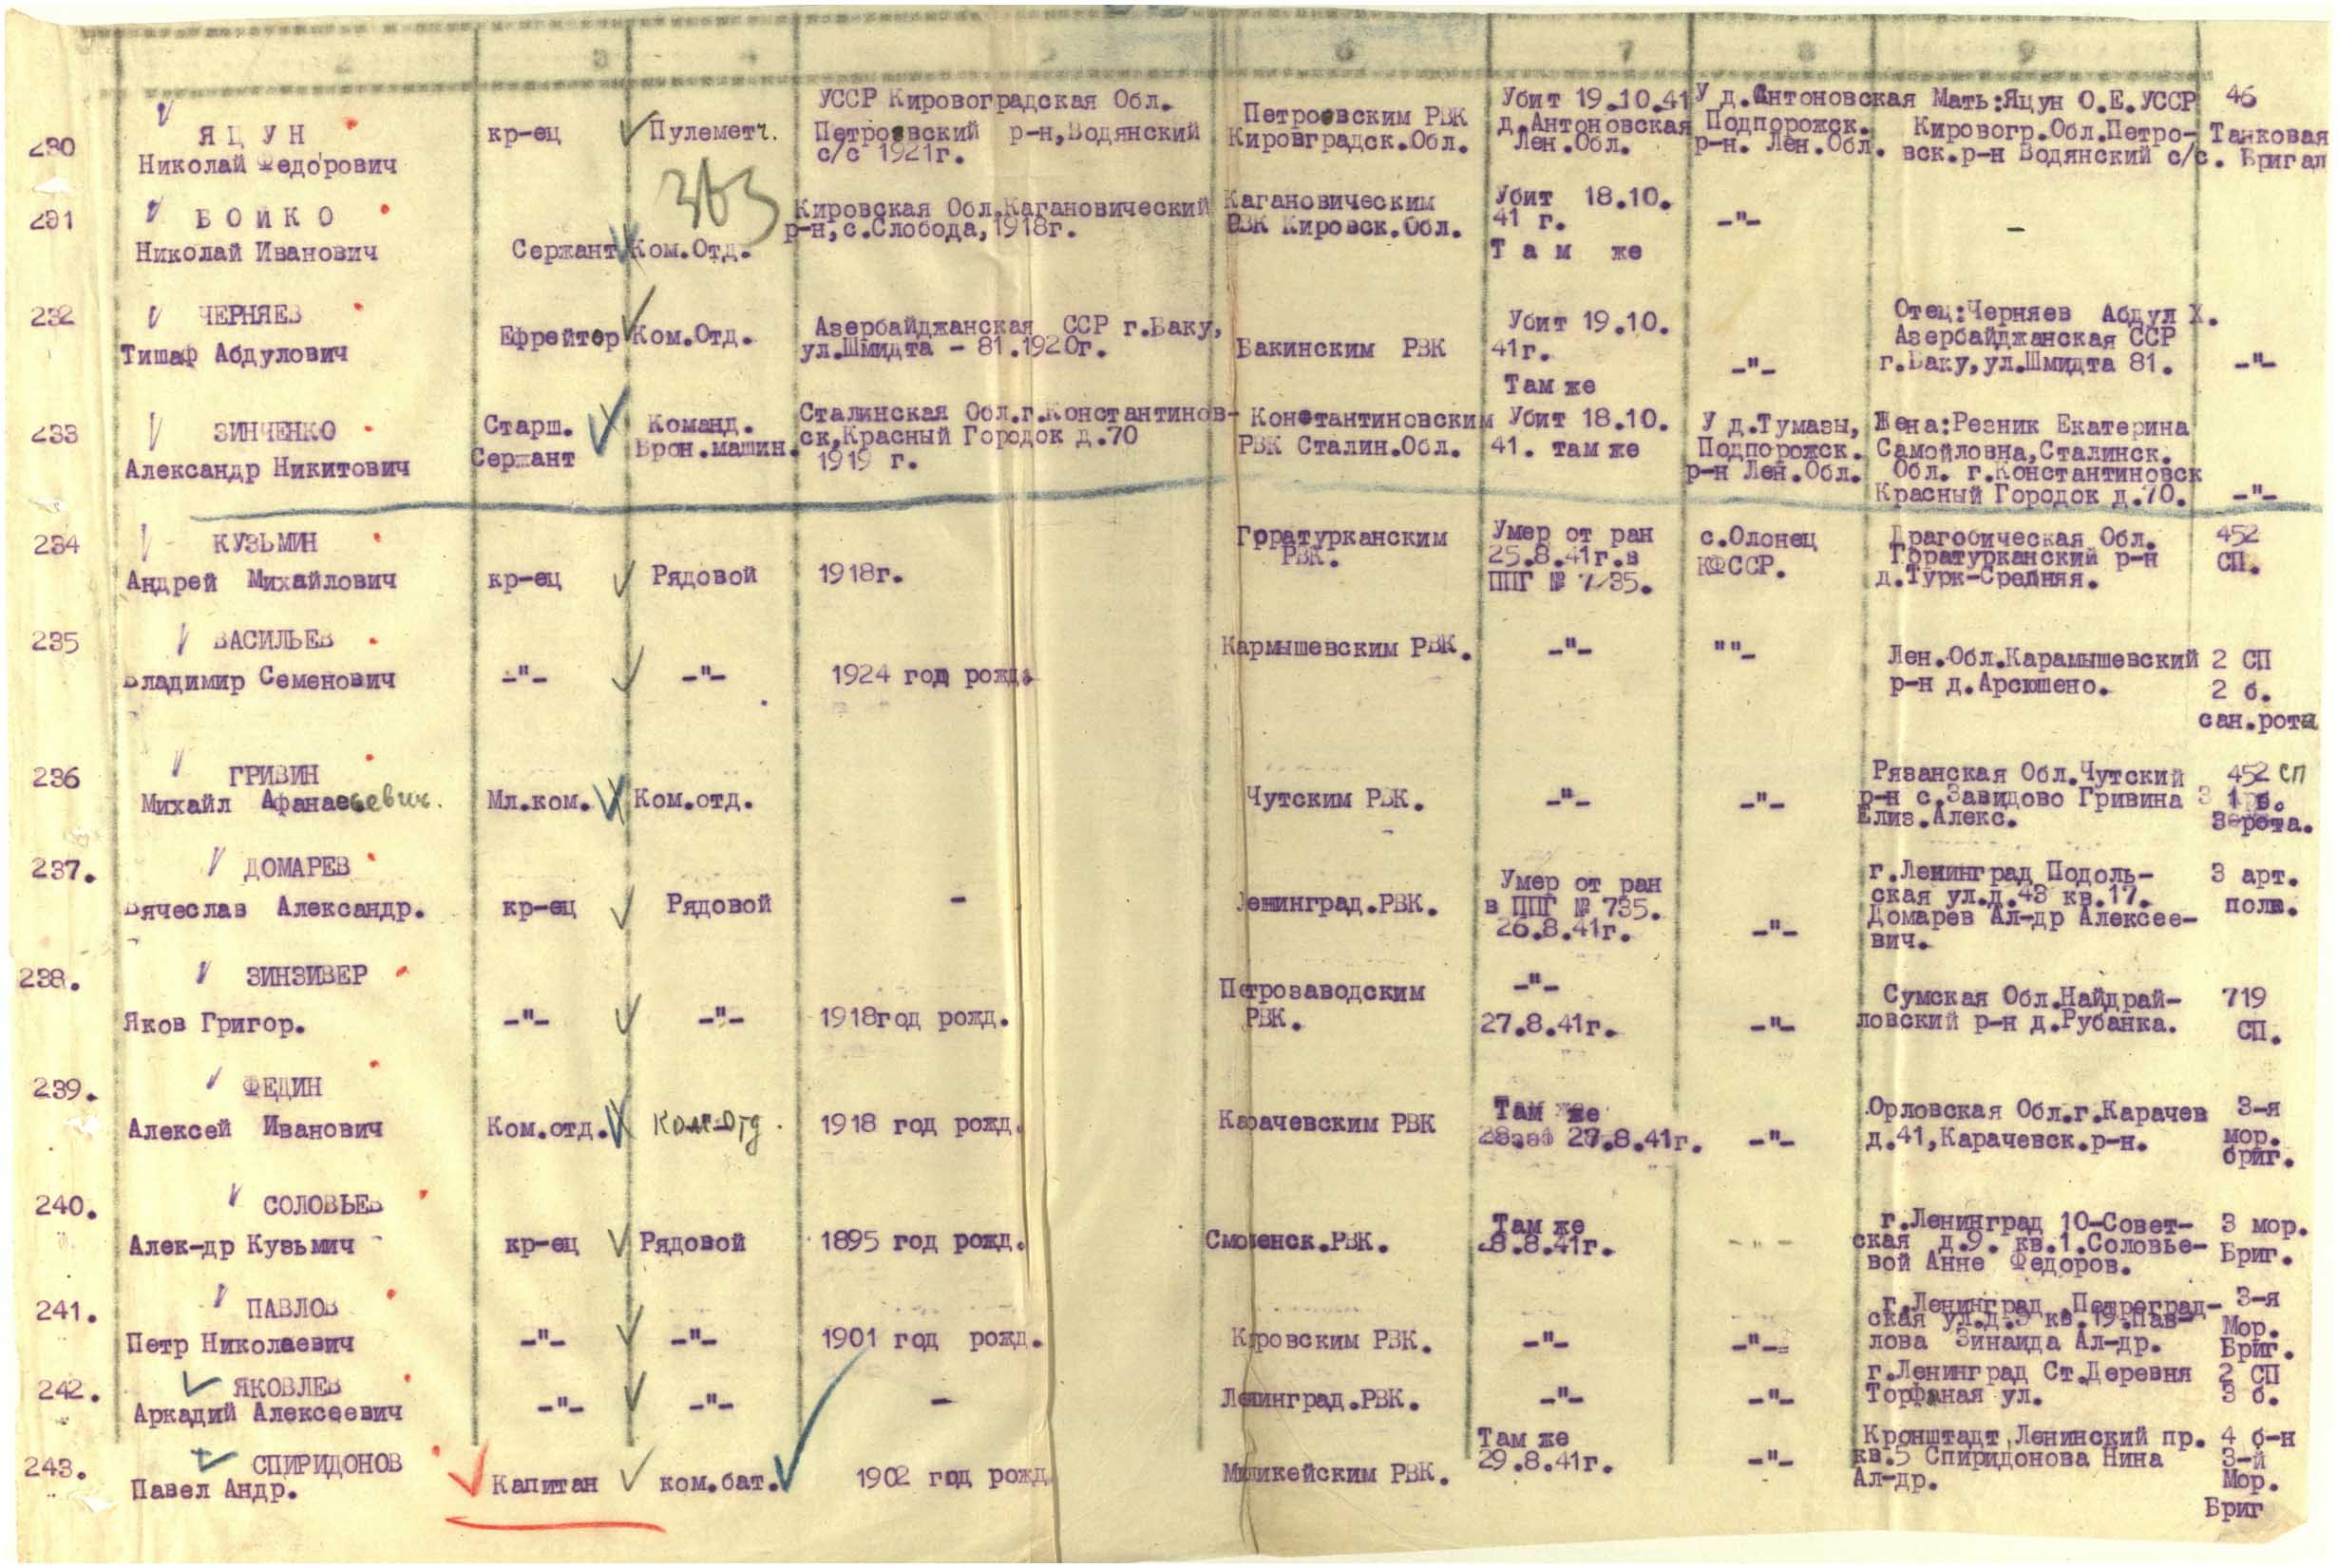 2 3 4 5 6 7 8 9
230 ЯЦУН
Николай Федорович
кр-ец
Пулеметч.
УССР Кировоградская Обл.
Петроевский р-н, Водянский
с/с 1921г.
Петроевским РВК
Кировградск.Обл.
Убит 19.10.41
д.Антоновская
Лен.Обл.
У д.Антоновская
Подпорожск.
р-н. Лен.Обл.
Мать:Яцун О.Е.УССР
Кировогр.Обл.Петро-
вск.р-н Водянский с/с.
46
Танковая
Бригад
363
231 БОЙКО
Николай Иванович
Сержант
Ком.Отд.
Кировская Обл.Кагановический
р-н,с.Слобода,1918г.
Кагановическим
РВК Кировск.Обл.
Убит 18.10.
41 г.
Там же
-"-
-
232 ЧЕРНЯЕВ
Тишаф Абдулович
Ефрейтор
Ком.Отд.
Азербайджанская ССР г.Баку,
ул.Шмидта - 81.1920г.
Бакинским РВК
Убит 19.10.
41г.
Там же
-"-
Отец:Черняев Абдул Х.
Азербайджанская ССР
г.Баку,ул.Шмидта 81.
-"-
233 ЗИНЧЕНКО
Александр Никитович
Старш.
Сержант
Команд.
Брон.машин.
Сталинская Обл.г.Константинов-
ск,Красный Городок д.70
1919 г.
Константиновским
РВК Сталин.Обл.
Убит 18.10.
41. там же
У д.Тумазы,
Подпорожск.
р-н Лен.Обл.
Жена:Резник Екатерина
Самойловна,Сталинск.
Обл. г.Константиновск
Красный Городок д.70.
-"-
234 КУЗЬМИН
Андрей Михайлович
кр-ец
Рядовой
1918г.
Горатурканским
РВК.
Умер от ран
25.8.41г.в
ППГ № 735.
с.Олонец
КФССР.
Драгобическая Обл.
Горатурканский р-н
д.Турк-Средняя.
452
СП.
235 ВАСИЛЬЕВ
Владимир Семенович
-"-
-"-
1924 год рожд.
Кармышевским РВК.
-"-
""-
Лен.Обл.Карамышевский
р-н д.Арсюшено.
2 СП
2 б.
сан.рота
236 ГРИВИН
Михайл Афанасьевич.
Мл.ком.
Ком.отд.
Чутским РВК.
-"-
-"-
Рязанская Обл.Чутский
р-н с.Завидово Гривина
Елиз.Алекс.
452 сп
1 б.
3 рота.
237. ДОМАРЕВ
Вячеслав Александр.
кр-ец
Рядовой
-
Ленинград.РВК.
Умер от ран
в ППГ № 735.
26.8.41г.
-"-
г.Ленинград Подоль-
ская ул.д.43 кв.17.
Домарев Ал-др Алексее-
вич.
3 арт.
полк.
238. ЗИНЗИВЕР
Яков Григор.
-"-
-"-
1918год рожд.
Петрозаводским
РВК.
-"-
27.8.41г.
-"-
Сумская Обл.Найдрай-
ловский р-н д.Рубанка.
719
СП.
239. ФЕДИН
Алексей Иванович
Ком.отд.
Ком-отд.
1918 год рожд.
Карачевским РВК
Там же
27.8.41г.
-"-
Орловская Обл.г.Карачев
д.41,Карачевск.р-н.
3-я
мор.
бриг.
240. СОЛОВЬЕВ
Алек-др Кузьмич
кр-ец
Рядовой
1895 год рожд.
Смоленск.РВК.
Там же
8.8.41г.
-"-
г.Ленинград 10-Совет-
ская д.9. кв.1.Соловье-
вой Анне Федоров.
3 мор.
Бриг.
241. ПАВЛОВ
Петр Николаевич
-"-
-"-
1901 год рожд.
Кировским РВК.
-"-
-"-
г.Ленинград,Петроград-
ская ул.д.5 кв.19.Пав-
лова Зинаида Ал-др.
3-я
Мор.
Бриг.
242. ЯКОВЛЕВ
Аркадий Алексеевич
-"-
-"-
-
Ленинград.РВК.
-"-
-"-
г.Ленинград Ст.Деревня
Торфяная ул.
2 СП
3 б.
243. СПИРИДОНОВ
Павел Андр.
Капитан
ком.бат.
1902 год рожд
Миликейским РВК.
Там же
29.8.41г.
-"-
Кронштадт,Ленинский пр.
кв.5 Спиридонова Нина
Ал-др.
4 б-н
3-й
Мор.
Бриг